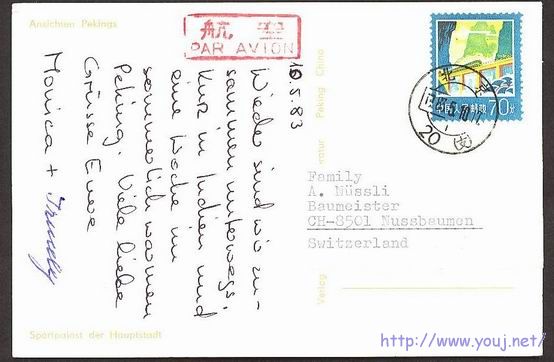 Ansichten Pekings
航空
PAR AVION
中国人民邮政 70分
北京
20 (支)
10.5.83
Wieder sind wir zu-
sammen unterwegs.
Kurz in Indien und
eine Woche im
sommerlich warmen
Peking. Viele liebe
Grüsse Euere
Monica +
Family
A. Nüssli
Baumeister
CH-8501 Nussbaumen
Switzerland
Verlag Peking China
Sportpalast der Hauptstadt
http://www.youj.net/